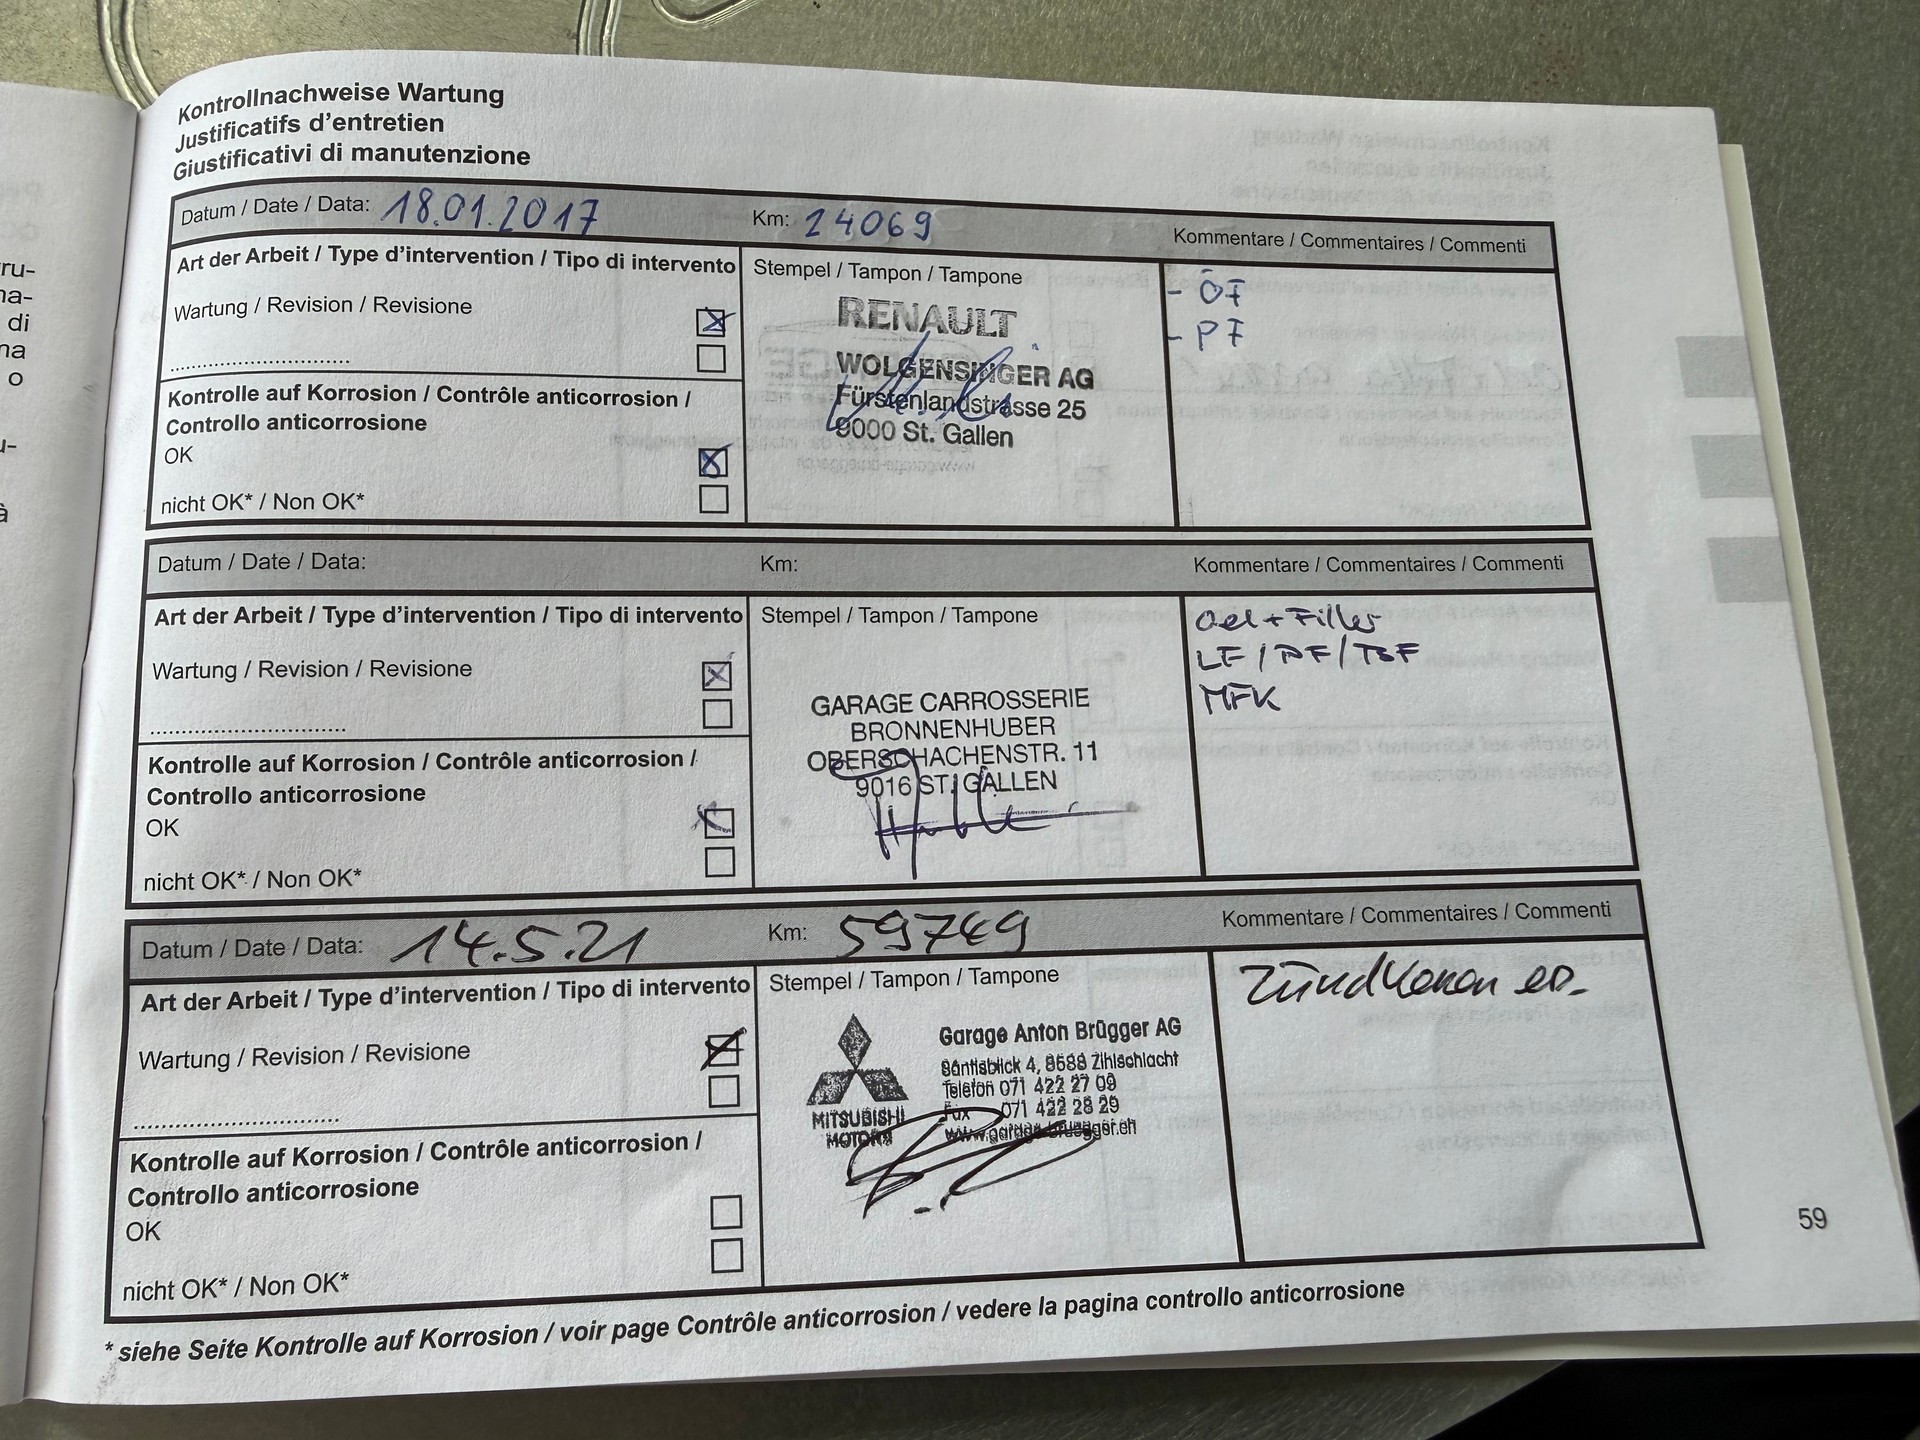 Kontrollnachweise Wartung
Justificatifs d'entretien
Giustificativi di manutenzione
Datum / Date / Data: 18.01.2017 Km: 24069 Kommentare / Commentaires / Commenti
Art der Arbeit / Type d'intervention / Tipo di intervento
Wartung / Revision / Revisione
Kontrolle auf Korrosion / Contrôle anticorrosion /
Controllo anticorrosione
OK
nicht OK* / Non OK*
Stempel / Tampon / Tampone
RENAULT
WOLGENSINGER AG
Fürstenlandstrasse 25
9000 St. Gallen
- ÖF
- PF
Datum / Date / Data: Km: Kommentare / Commentaires / Commenti
Art der Arbeit / Type d'intervention / Tipo di intervento
Wartung / Revision / Revisione
Kontrolle auf Korrosion / Contrôle anticorrosion /
Controllo anticorrosione
OK
nicht OK* / Non OK*
Stempel / Tampon / Tampone
GARAGE CARROSSERIE
BRONNENHUBER
OBERSCHACHENSTR. 11
9016 ST. GALLEN
Oel + Filter
LF / PF /
MFK
Datum / Date / Data: 14.5.21 Km: 59749 Kommentare / Commentaires / Commenti
Art der Arbeit / Type d'intervention / Tipo di intervento
Wartung / Revision / Revisione
Kontrolle auf Korrosion / Contrôle anticorrosion /
Controllo anticorrosione
OK
nicht OK* / Non OK*
Stempel / Tampon / Tampone
MITSUBISHI
MOTORS
Garage Anton Brügger AG
Säntisblick 4, 8588 Zihlschlacht
Telefon 071 422 27 09
Fax 071 422 28 29
www.garage-bruegger.ch
Zündkerzen
* siehe Seite Kontrolle auf Korrosion / voir page Contrôle anticorrosion / vedere la pagina controllo anticorrosione
59
ru-
na-
di
na
o
u-
à